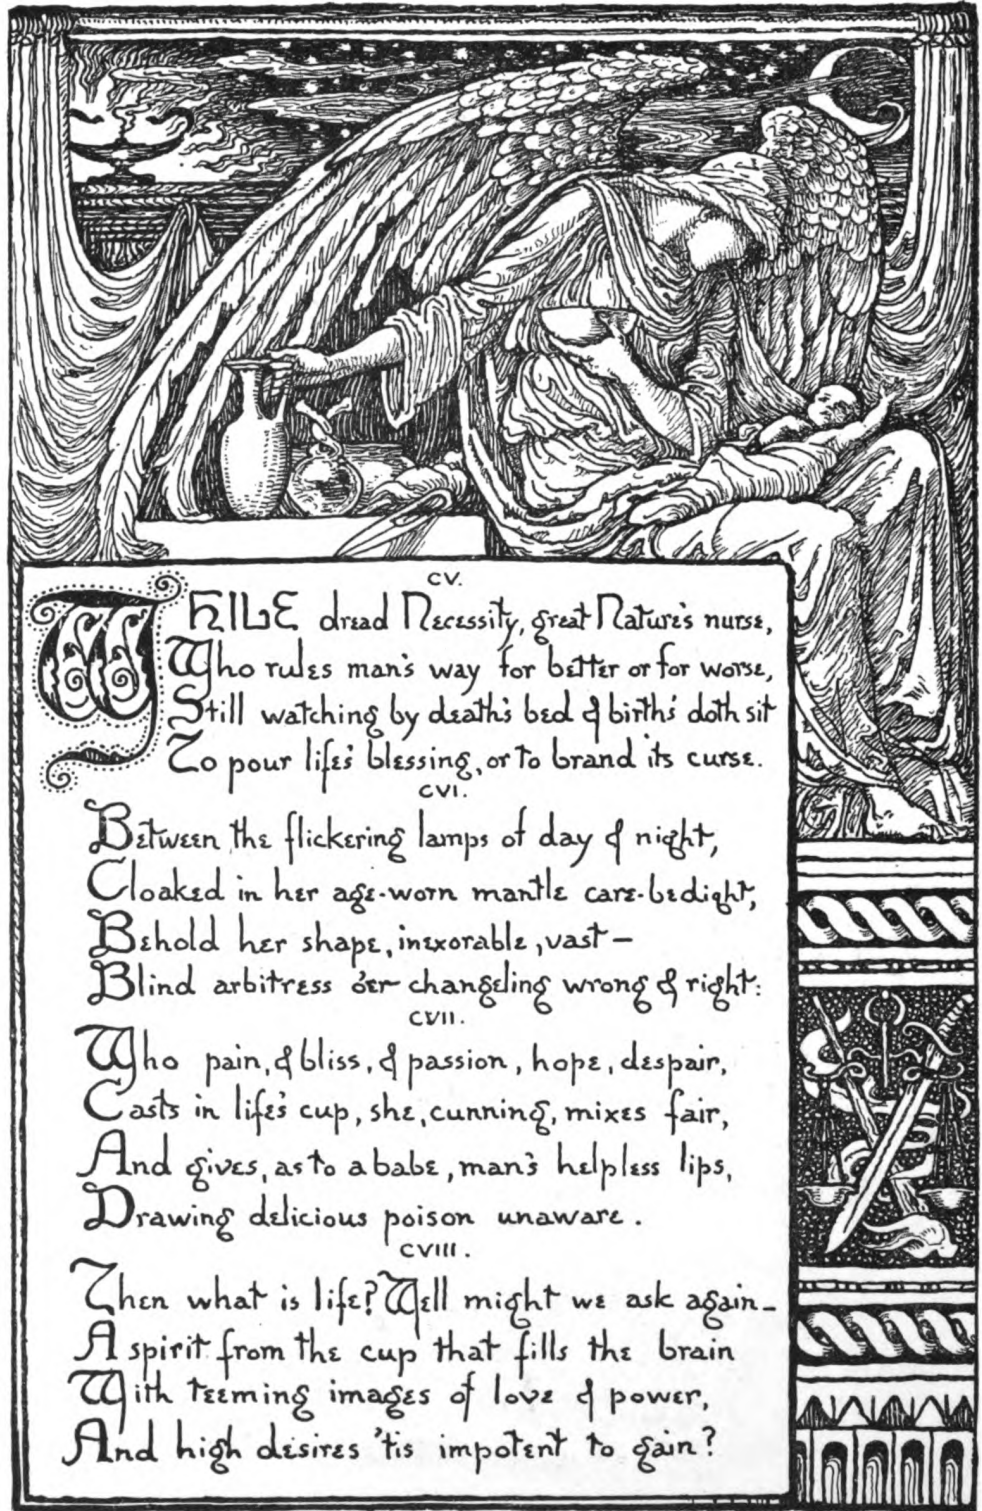 CV.
WHILE dread Necessity, great Nature's nurse,
Who rules man's way for better or for worse,
Still watching by death's bed & births' doth sit
To pour life's blessing, or to brand its curse.
CVI.
Between the flickering lamps of day & night,
Cloaked in her age-worn mantle care-bedight,
Behold her shape, inexorable, vast—
Blind arbitress o'er changeling wrong & right:
CVII.
Who pain, & bliss, & passion, hope, despair,
Casts in life's cup, she, cunning, mixes fair,
And gives, as to a babe, man's helpless lips,
Drawing delicious poison unaware.
CVIII.
Then what is life? Well might we ask again—
A spirit from the cup that fills the brain
With teeming images of love & power,
And high desires 'tis impotent to gain?